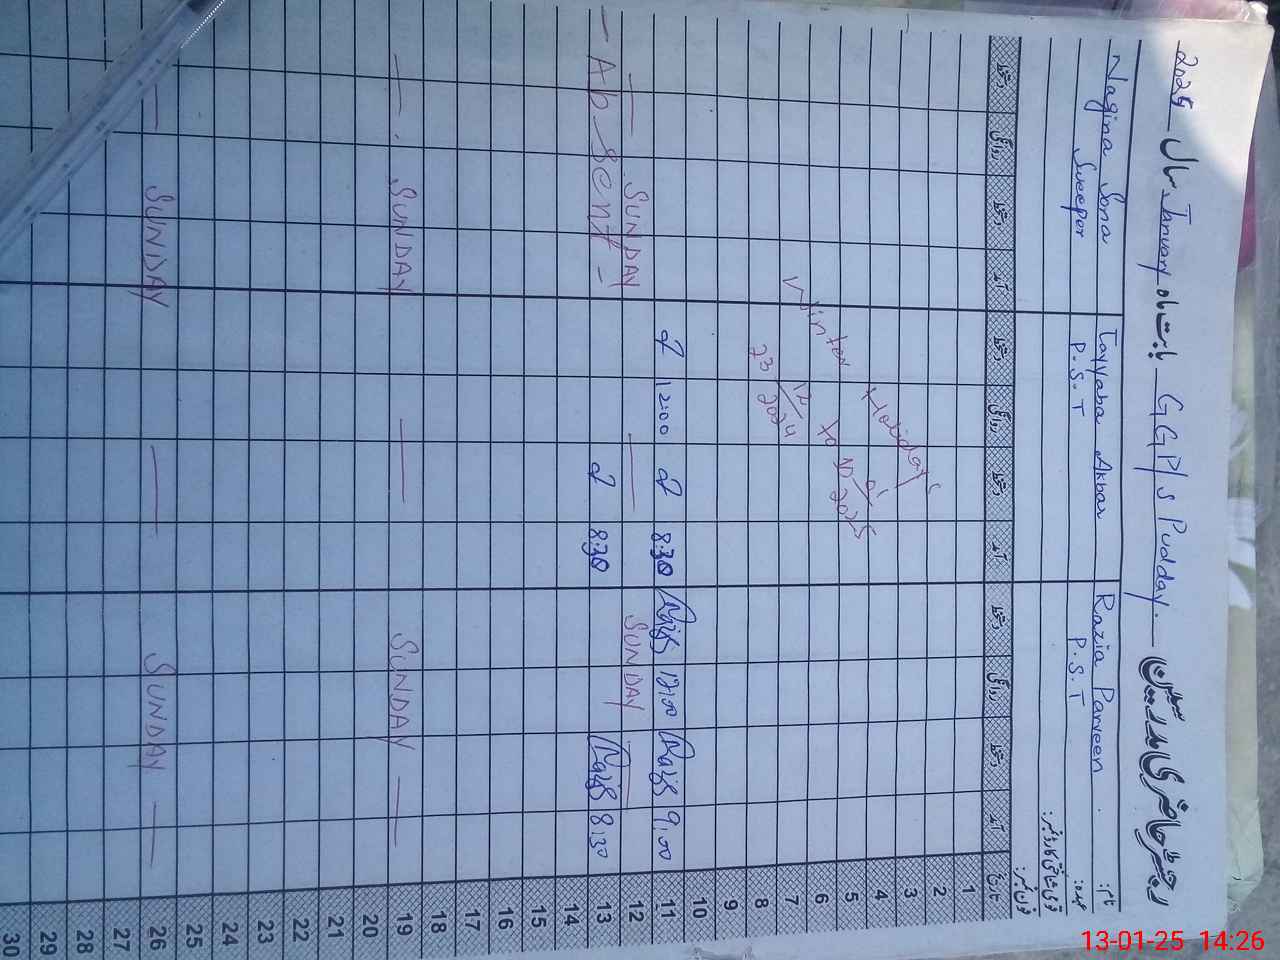 رجسٹر حاضری مدرسین G G P/S Pudday. بابت ماہ January سال 2025
نام: Razia Parveen Tayyaba Akbar Nagina Sona
عہدہ: P.S.T P.S.T Sweeper
قومی شناختی کارڈ نمبر:
فون نمبر:
تاریخ آمد دستخط روانگی دستخط آمد دستخط روانگی دستخط آمد دستخط روانگی دستخط
1
2
3
4
5
6
7
8
9
10
Winter Holidays
23/12/2024 to 10/01/2025
11 9:00 12:00 8:30 12:00
12 SUNDAY SUNDAY
13 8:30 8:30 - Absent -
14
15
16
17
18
19 SUNDAY SUNDAY
20
21
22
23
24
25
26 SUNDAY SUNDAY
27
28
29
30
13-01-25 14:26